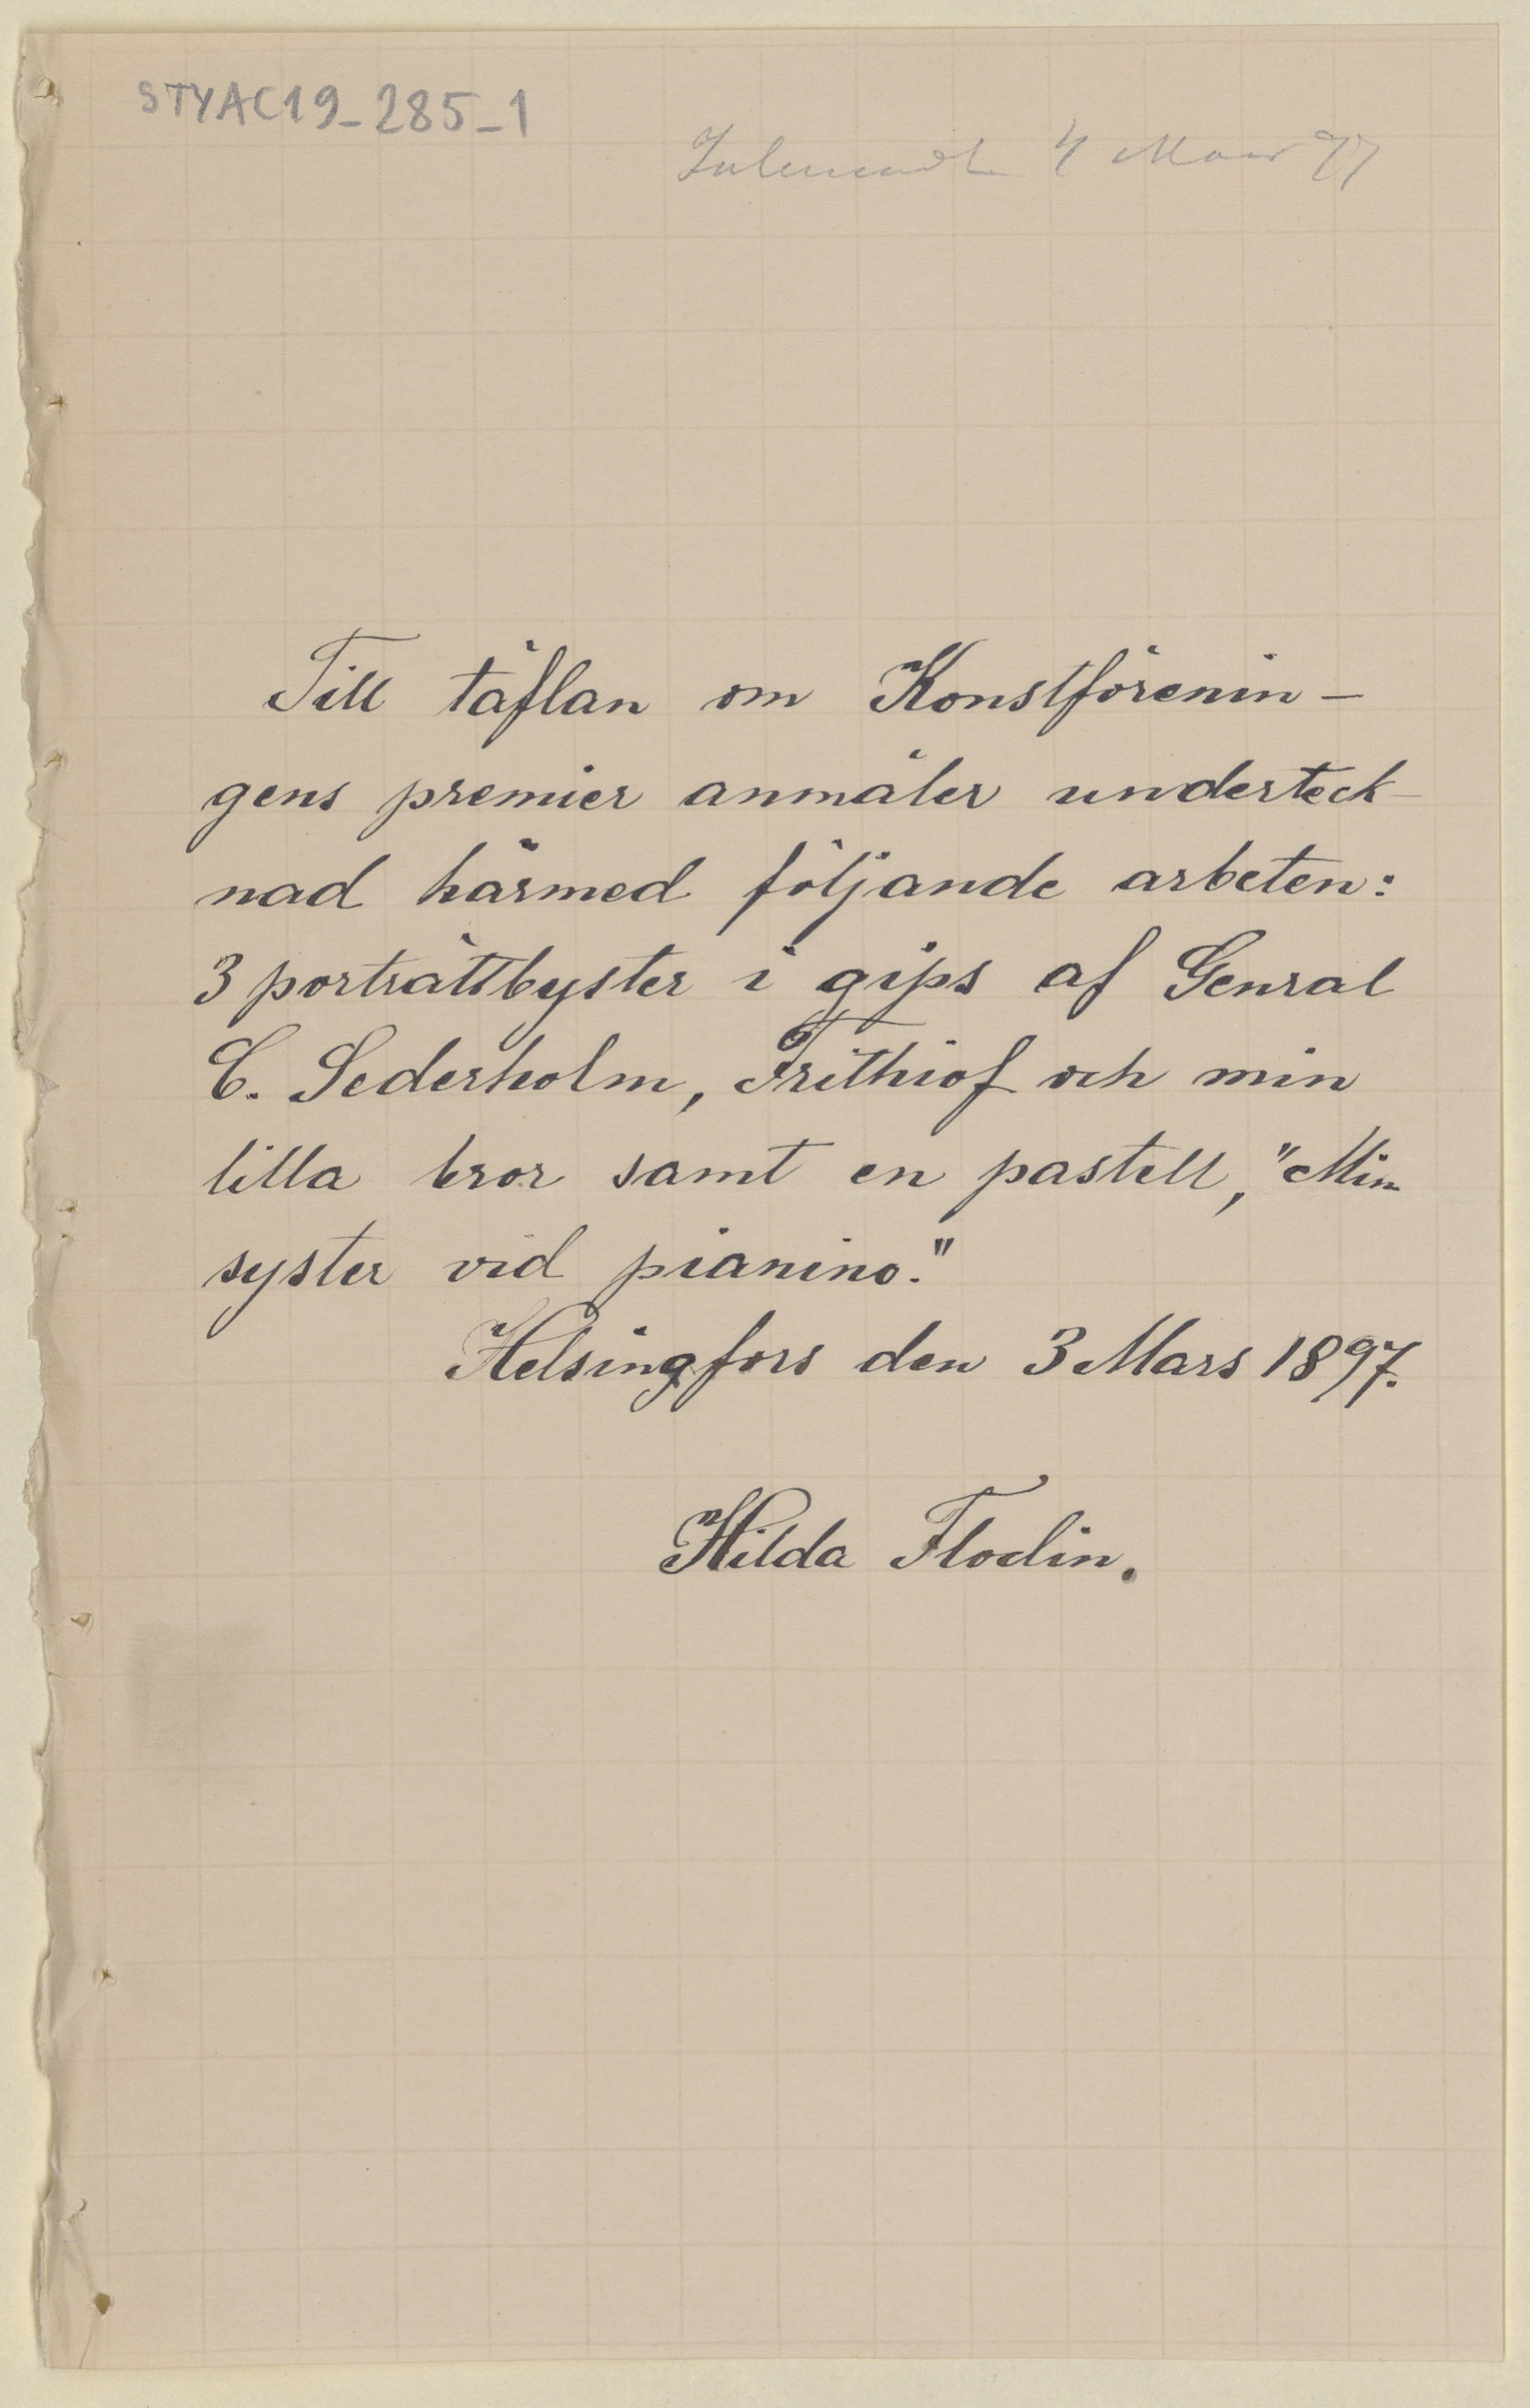 STYAC19-285-1
4 Mars 97
Till täflan om Konstförenin-
gens premier anmäler underteck-
nad härmed följande arbeten:
3 porträttbyster i gips af Genral
C. Sederholm, Frithiof och min
lilla bror samt en pastell, "Min
syster vid pianino."
Helsingfors den 3 Mars 1897.
Hilda Flodin.